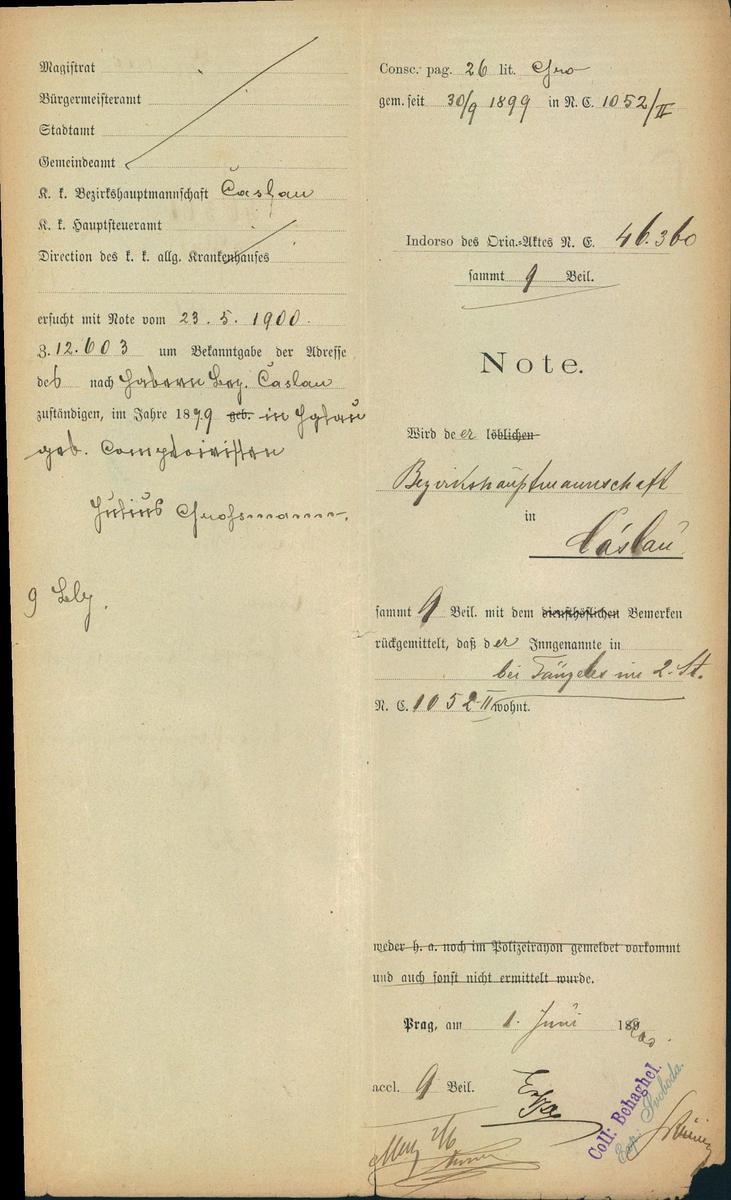 Magistrat
Bürgermeisteramt
Stadtamt
Gemeindeamt
K. k. Bezirkshauptmannschaft Časlau
K. k. Hauptsteueramt
Direction des k. k. allg. Krankenhauses
ersucht mit Note vom 23. 5. 1900.
Z. 12.603 um Bekanntgabe der Adresse
des nach Habern Bez. Časlau
zuständigen, im Jahre 1879 geb. in Iglau
geb. Comptoiristen
Julius Grossmann.
9 Blg.
Consc. pag. 26 lit. Gro
gem. seit 30/9 1899 in N. C. 1052/II
Indorso des Orig.-Aktes N. E. 46.360
sammt 9 Beil.
Note.
Wird der löblichen
Bezirkshauptmannschaft
in
Cáslau
sammt 9 Beil. mit dem diensthöflichen Bemerken
rückgemittelt, daß der Inngenannte in
bei im 2. St.
N. C. 1052-II wohnt.
weder h. a. noch im Polizeirayon gemeldet vorkommt
und auch sonst nicht ermittelt wurde.
Prag, am 1. Juni 1900.
accl. 9 Beil.
Coll: Behaghel.
Exp: Svoboda.